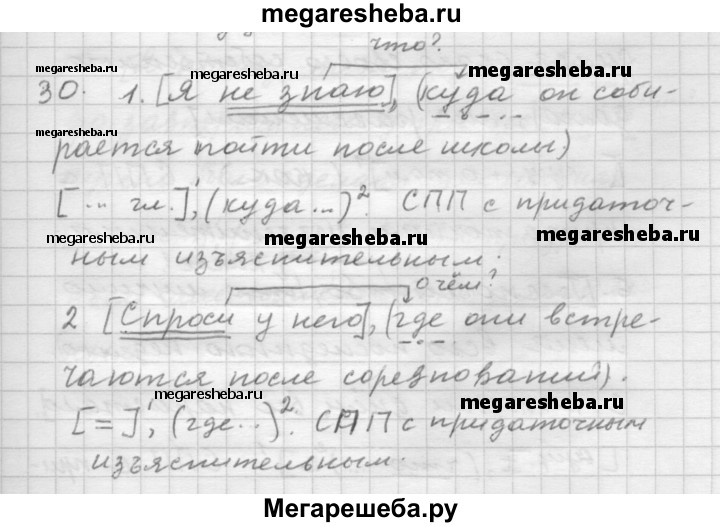 megaresheba.ru
что?
megaresheba.ru megaresheba.ru megaresheba.ru
30. 1. [Я не знаю], (куда он соби-
рается пойти после школы)
[... гл.]¹, (куда...)². СПП с придаточ-
megaresheba.ru megaresheba.ru megaresheba.ru
ным изъяснительным.
о чём?
2 [Спроси у него], (где они встре-
чаются после соревнований).
megaresheba.ru megaresheba.ru megaresheba.ru
[=]¹, (где..)². СПП с придаточным
изъяснительным.
Мегарешеба.ру